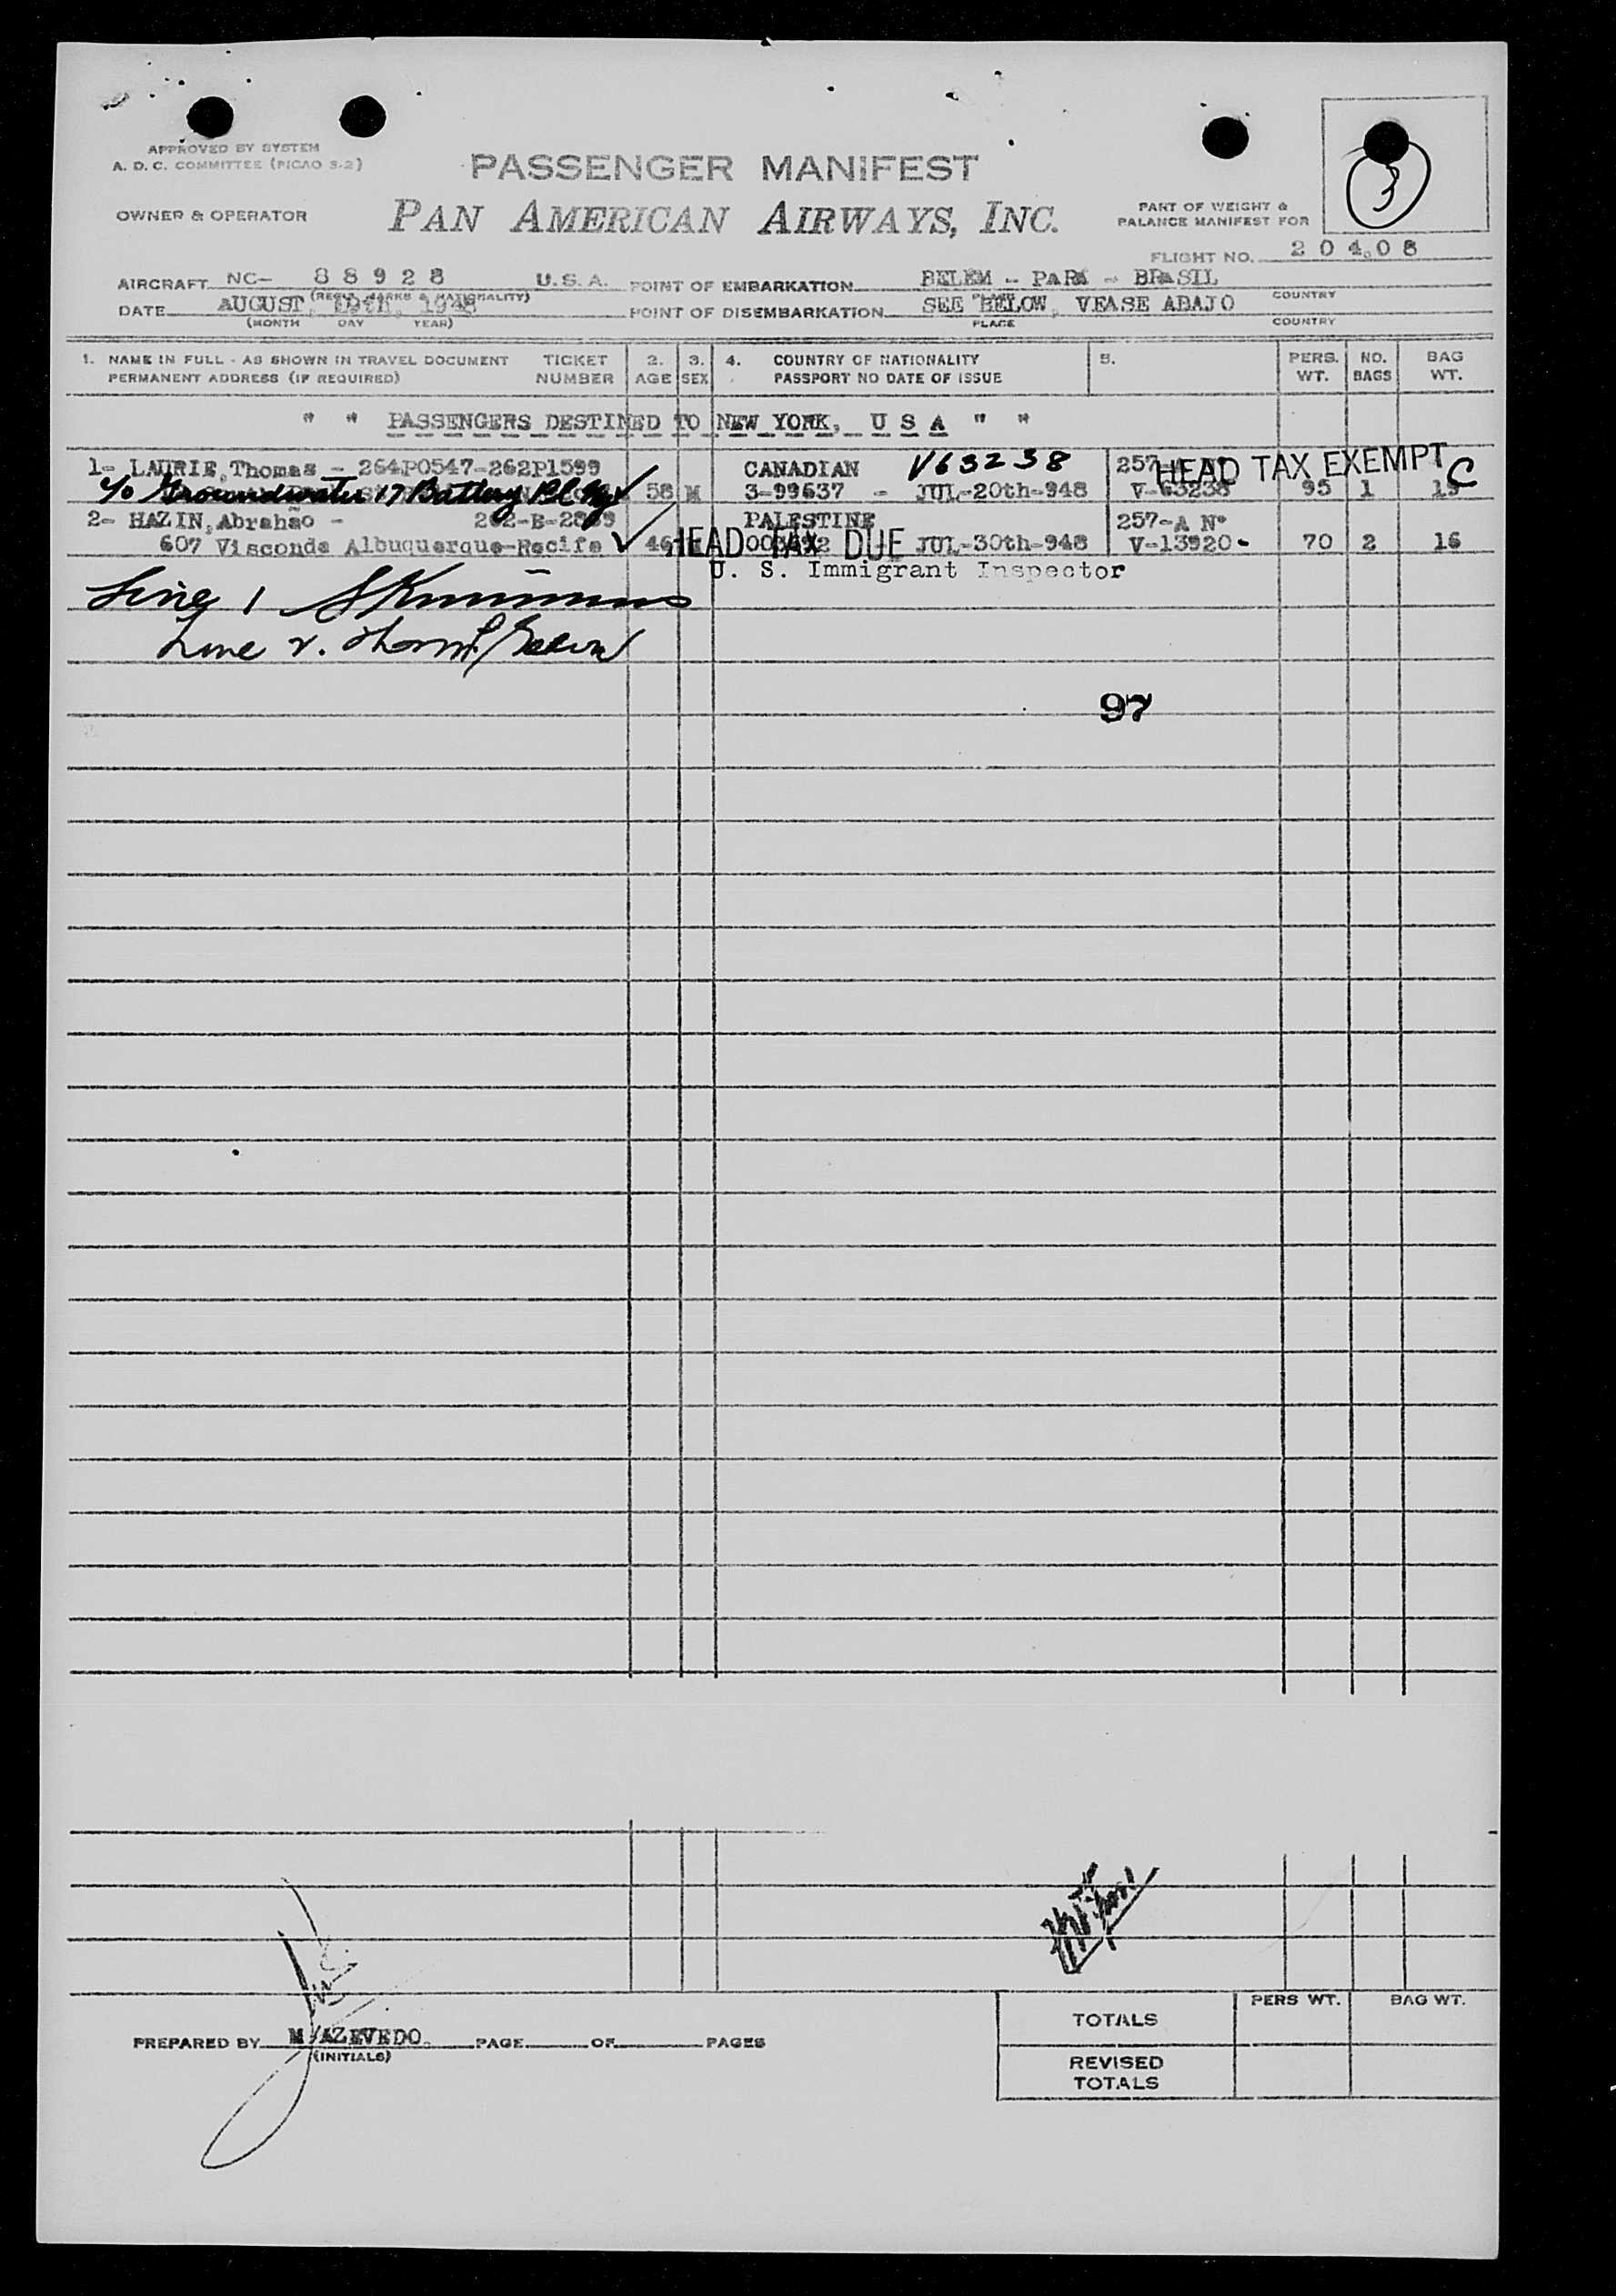 APPROVED BY SYSTEM
A. D. C. COMMITTEE (PICAO S-2)
PASSENGER MANIFEST
3
OWNER & OPERATOR
PAN AMERICAN AIRWAYS, INC.
PART OF WEIGHT &
BALANCE MANIFEST FOR
FLIGHT NO. 20408
AIRCRAFT NC- 88928 U.S.A. POINT OF EMBARKATION BELEM - PARA - BRASIL
(REG'N MARKS & NATIONALITY) PLACE COUNTRY
DATE AUGUST, 19th, 1948 POINT OF DISEMBARKATION SEE BELOW, VEASE ABAJO
(MONTH DAY YEAR) PLACE COUNTRY
1. NAME IN FULL - AS SHOWN IN TRAVEL DOCUMENT TICKET 2. 3. 4. COUNTRY OF NATIONALITY 5. PERS. NO. BAG
PERMANENT ADDRESS (IF REQUIRED) NUMBER AGE SEX PASSPORT NO DATE OF ISSUE WT. BAGS WT.
" " PASSENGERS DESTINED TO NEW YORK, U S A " "
1- LAURIE, Thomas - 264P0547-262P1599 CANADIAN V63238 257 HEAD TAX EXEMPT C
c/o Groundwater 17 Battery Pl Ny 58 M 3-99637 - JUL-20th-948 V-63238 95 1 15
2- HAZIN, Abrahão - 262-B-2869 PALESTINE 257-A Nº
607 Visconde Albuquerque-Recife 46 HEAD TAX DUE JUL-30th-948 V-13920- 70 2 16
U. S. Immigrant Inspector
Line 1
Line 2.
97
PERS WT. BAG WT.
TOTALS
PREPARED BY M/AZEVEDO. PAGE OF PAGES
(INITIALS)
REVISED
TOTALS